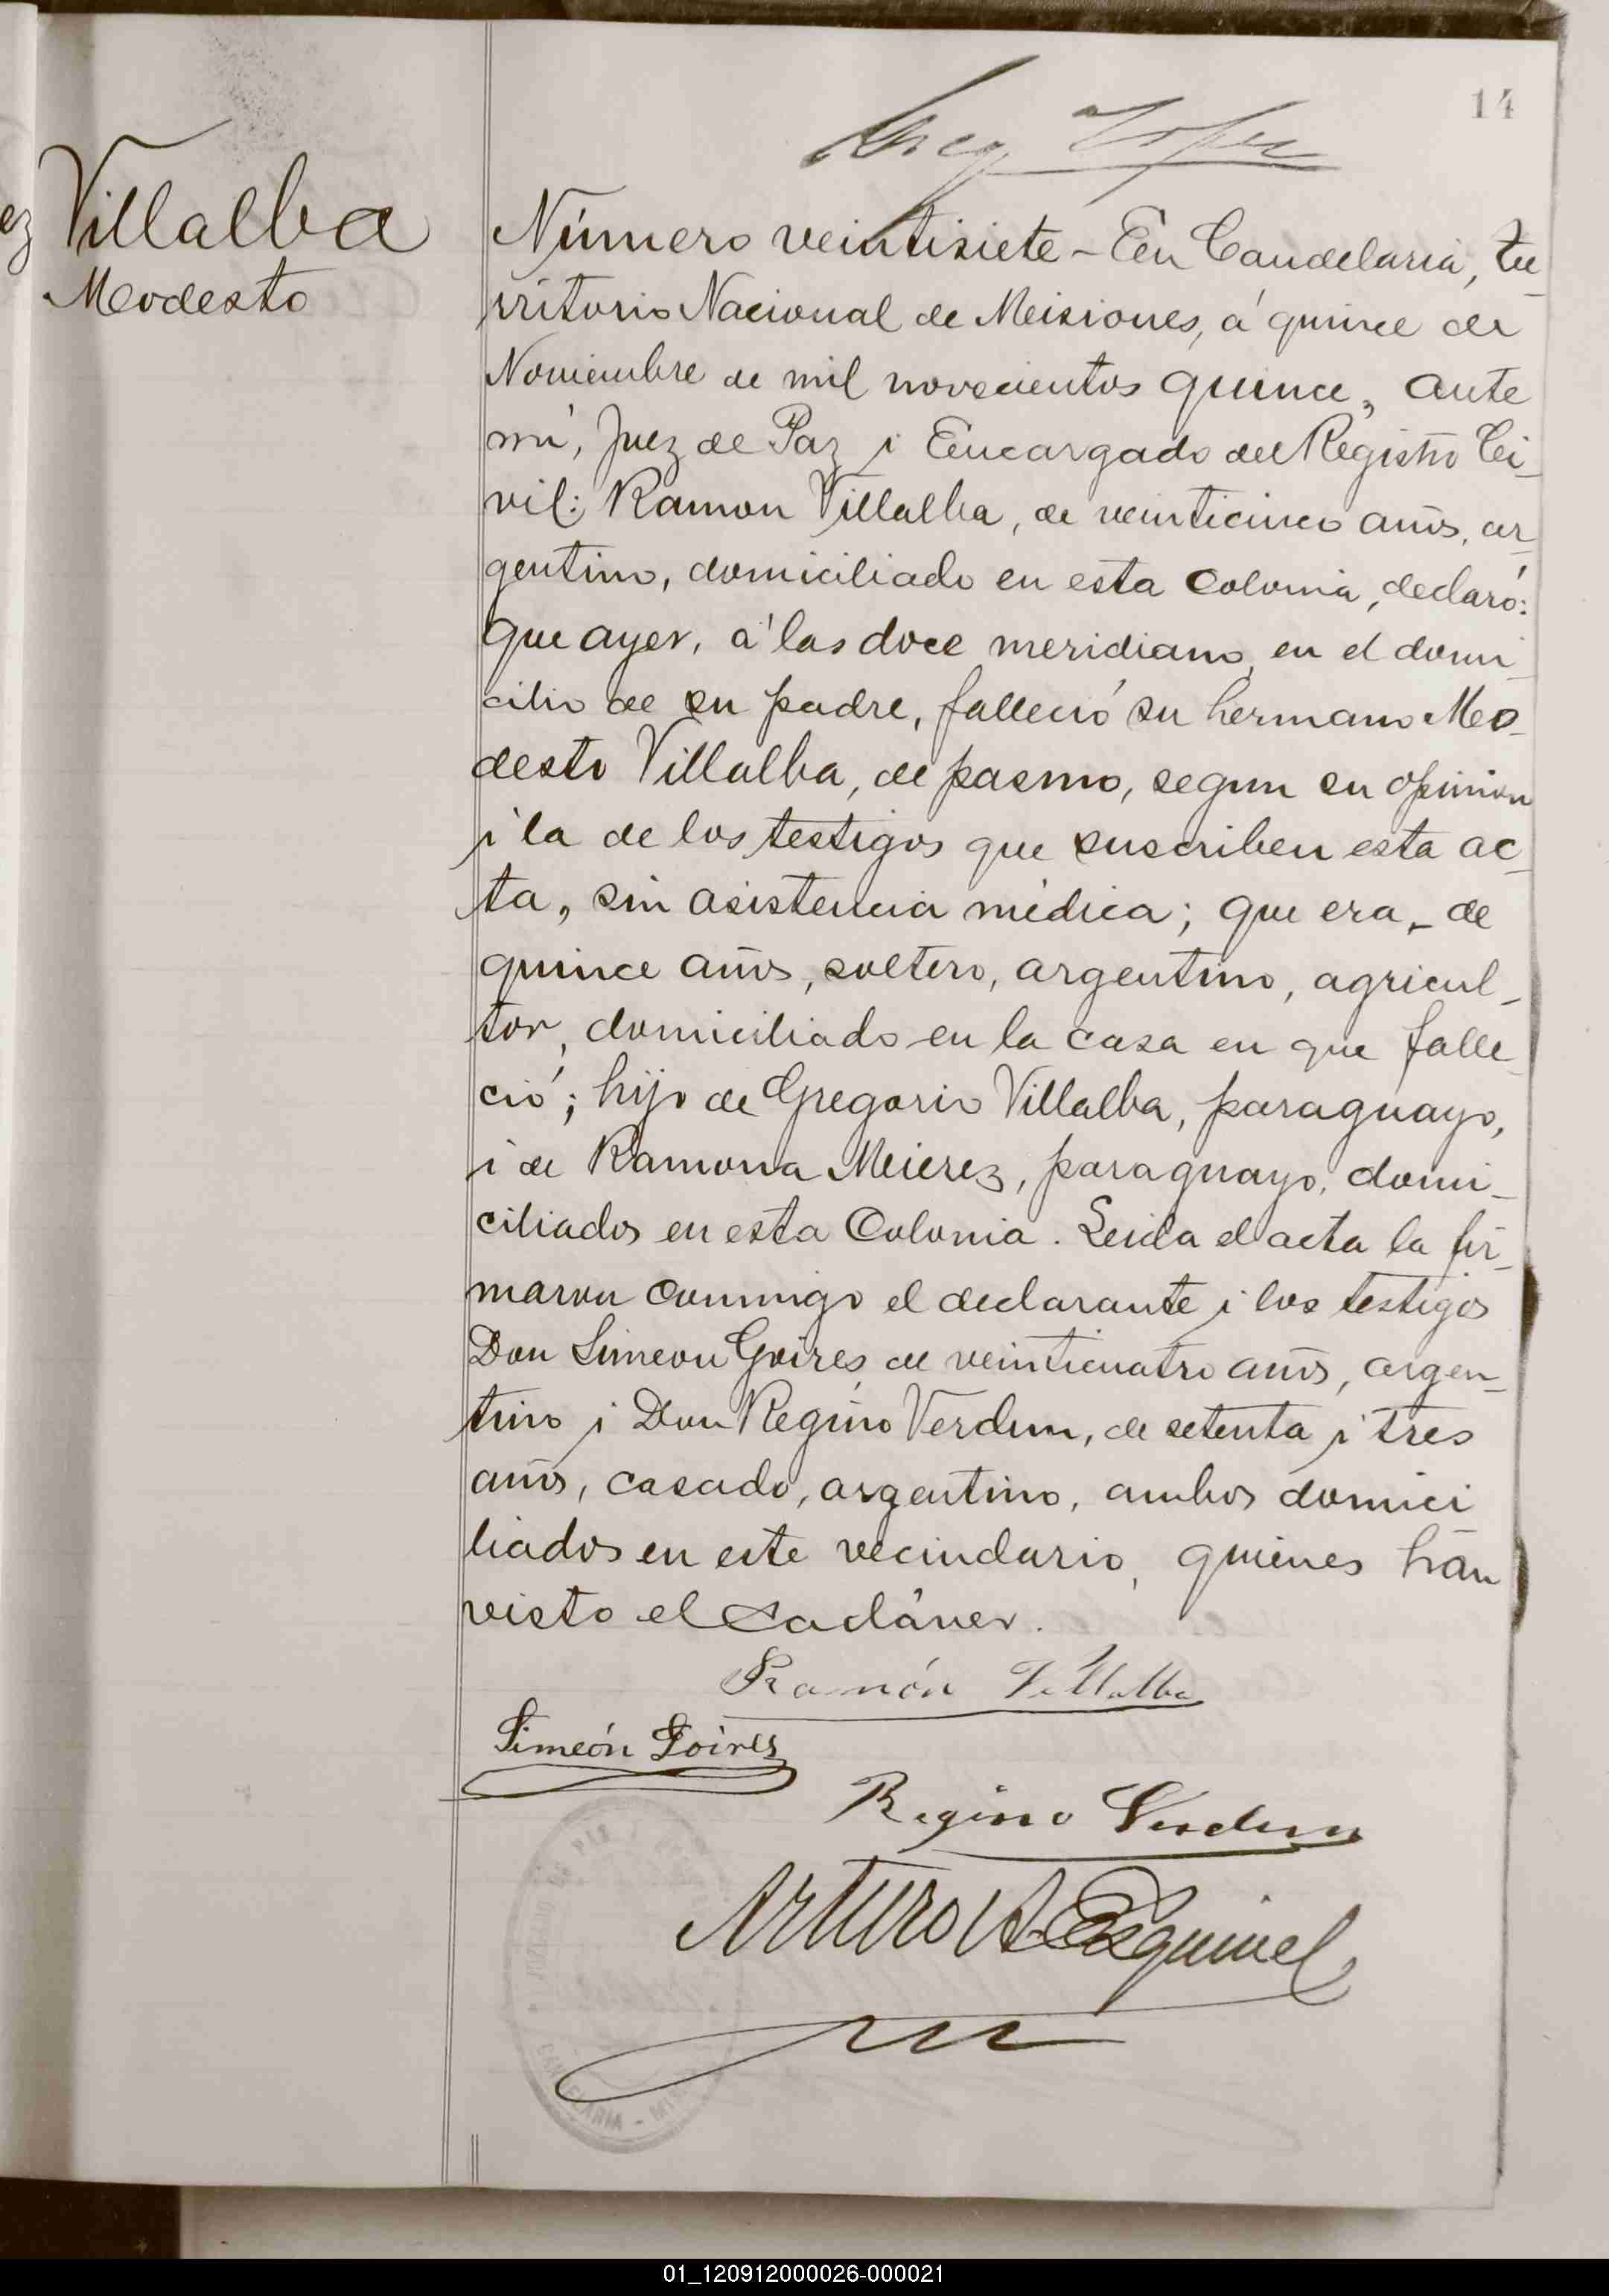 14
Greg Lopez
Villalba
Modesto
Número veintisiete - En Candelaria, te
rritorio Nacional de Misiones, á quince de
Noviembre de mil novecientos quince, ante
mi, Juez de Paz i Encargado del Registro Ci-
vil: Ramon Villalba, de veinticinco años, ar-
gentino, domiciliado en esta Colonia, declaró:
Que ayer, á las doce meridiano, en el domi-
cilio de su padre, falleció su hermano Mo-
desto Villalba, de pasmo, segun su opinion
i la de los testigos que suscriben esta ac-
ta, sin asistencia médica; que era, de
quince años, soltero, argentino, agricul-
tor, domiciliado en la casa en que falle-
ció; hijo de Gregorio Villalba, paraguayo,
i de Ramona Mierez, paraguayo, domi-
ciliados en esta Colonia. Leida el acta la fir-
maron conmigo el declarante i los testigos
Don Simeon Goires, de veinticuatro años, argen-
tino i Don Regino Verdun, de setenta i tres
años, casado, argentino, ambos domici
liados en este vecindario, quienes han
visto el cadáver.
Ramón Villalba
Simeón Goires
Regino Verdun
Arturo A. Esquivel
JUZGADO DE PAZ
CANDELARIA - MIS
01_120912000026-000021